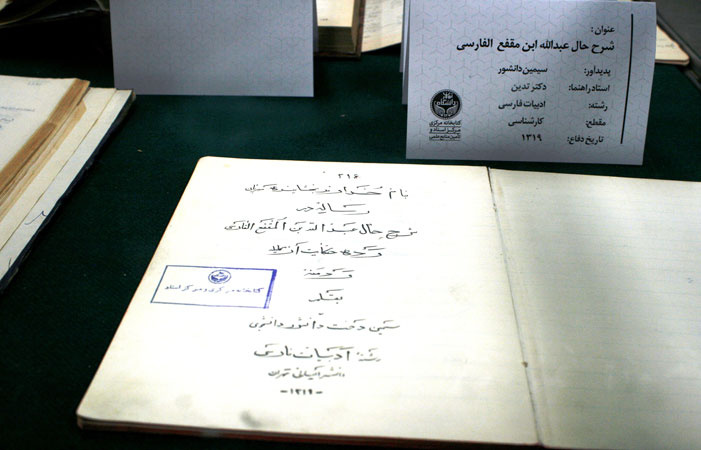 عنوان :
شرح حال عبدالله ابن مقفع الفارسی
پدیدآور: سیمین دانشور
استاد راهنما: دکتر تدین
رشته: ادبیات فارسی
مقطع: کارشناسی
تاریخ دفاع: ۱۳۱۹
کتابخانه مرکزی
مرکز اسناد و
تامین منابع علمی
۲۱۶
بنام
رساله در
شرح حال عبدالله بن المقفع الفارسی
و ترجمه
بقلم
سیمین دخت دانشور دانشجوی
رشته ادبیات فارسی
تهران
-۱۳۱۹-
کتابخانه مرکزی و مرکز اسناد